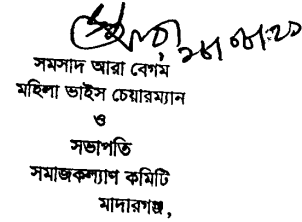 সমসাদ আরা বেগম
মহিলা ভাইস চেয়ারম্যান
ও
সভাপতি
সমাজকল্যাণ কমিটি
মাদারগঞ্জ,